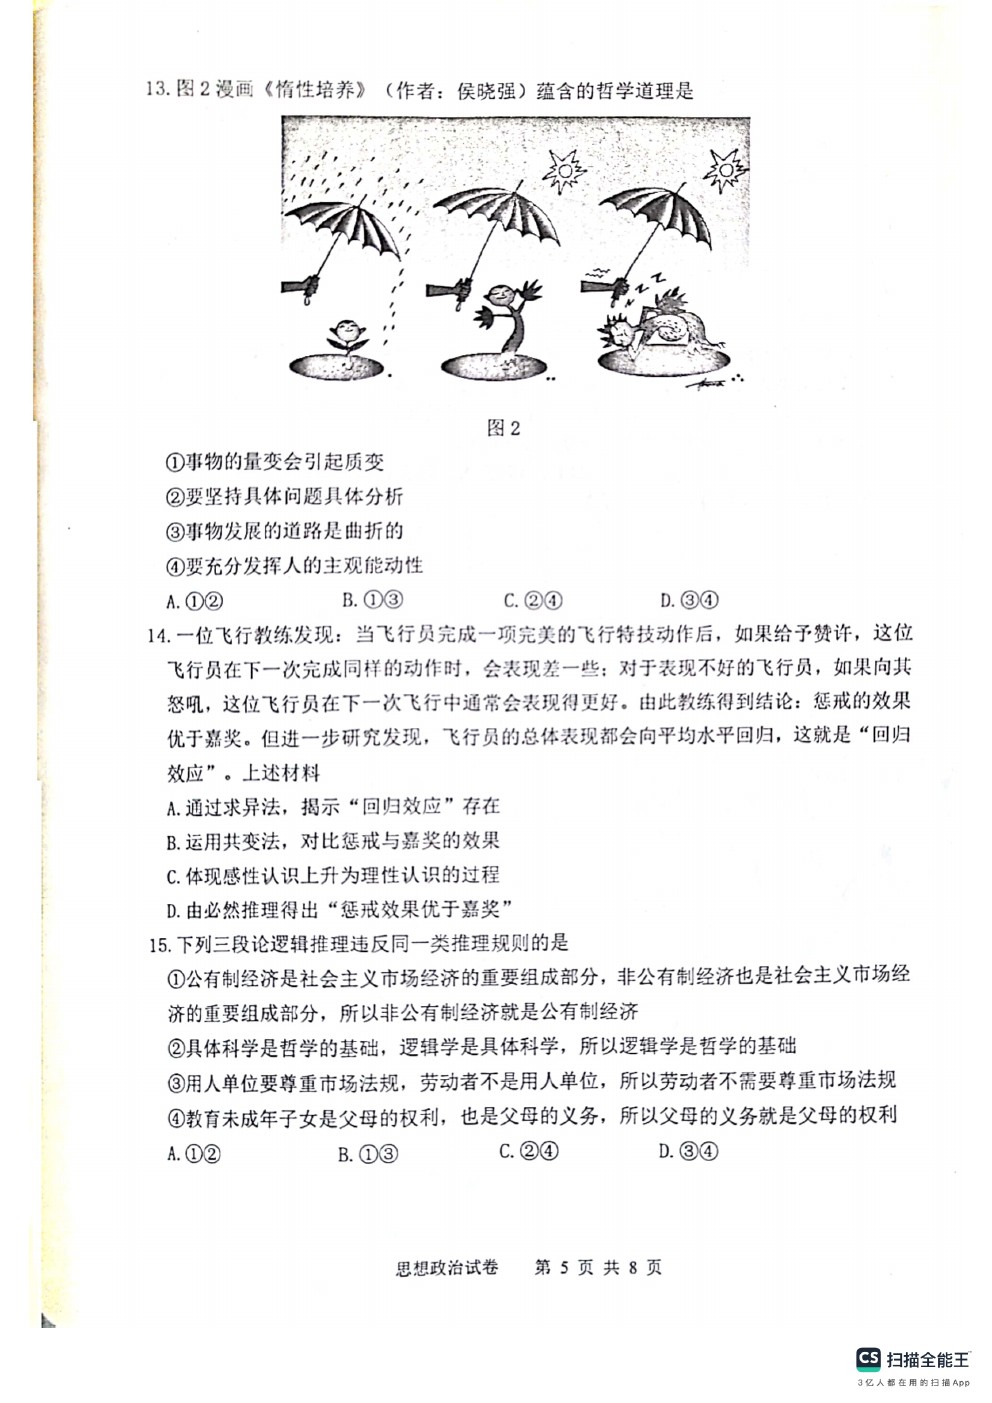 13.图2漫画《惰性培养》（作者：侯晓强）蕴含的哲学道理是
图2
①事物的量变会引起质变
②要坚持具体问题具体分析
③事物发展的道路是曲折的
④要充分发挥人的主观能动性
A.①② B.①③ C.②④ D.③④
14.一位飞行教练发现：当飞行员完成一项完美的飞行特技动作后，如果给予赞许，这位
飞行员在下一次完成同样的动作时，会表现差一些；对于表现不好的飞行员，如果向其
怒吼，这位飞行员在下一次飞行中通常会表现得更好。由此教练得到结论：惩戒的效果
优于嘉奖。但进一步研究发现，飞行员的总体表现都会向平均水平回归，这就是“回归
效应”。上述材料
A.通过求异法，揭示“回归效应”存在
B.运用共变法，对比惩戒与嘉奖的效果
C.体现感性认识上升为理性认识的过程
D.由必然推理得出“惩戒效果优于嘉奖”
15.下列三段论逻辑推理违反同一类推理规则的是
①公有制经济是社会主义市场经济的重要组成部分，非公有制经济也是社会主义市场经
济的重要组成部分，所以非公有制经济就是公有制经济
②具体科学是哲学的基础，逻辑学是具体科学，所以逻辑学是哲学的基础
③用人单位要尊重市场法规，劳动者不是用人单位，所以劳动者不需要尊重市场法规
④教育未成年子女是父母的权利，也是父母的义务，所以父母的义务就是父母的权利
A.①② B.①③ C.②④ D.③④
思想政治试卷 第 5 页 共 8 页
CS 扫描全能王
3亿人都在用的扫描App